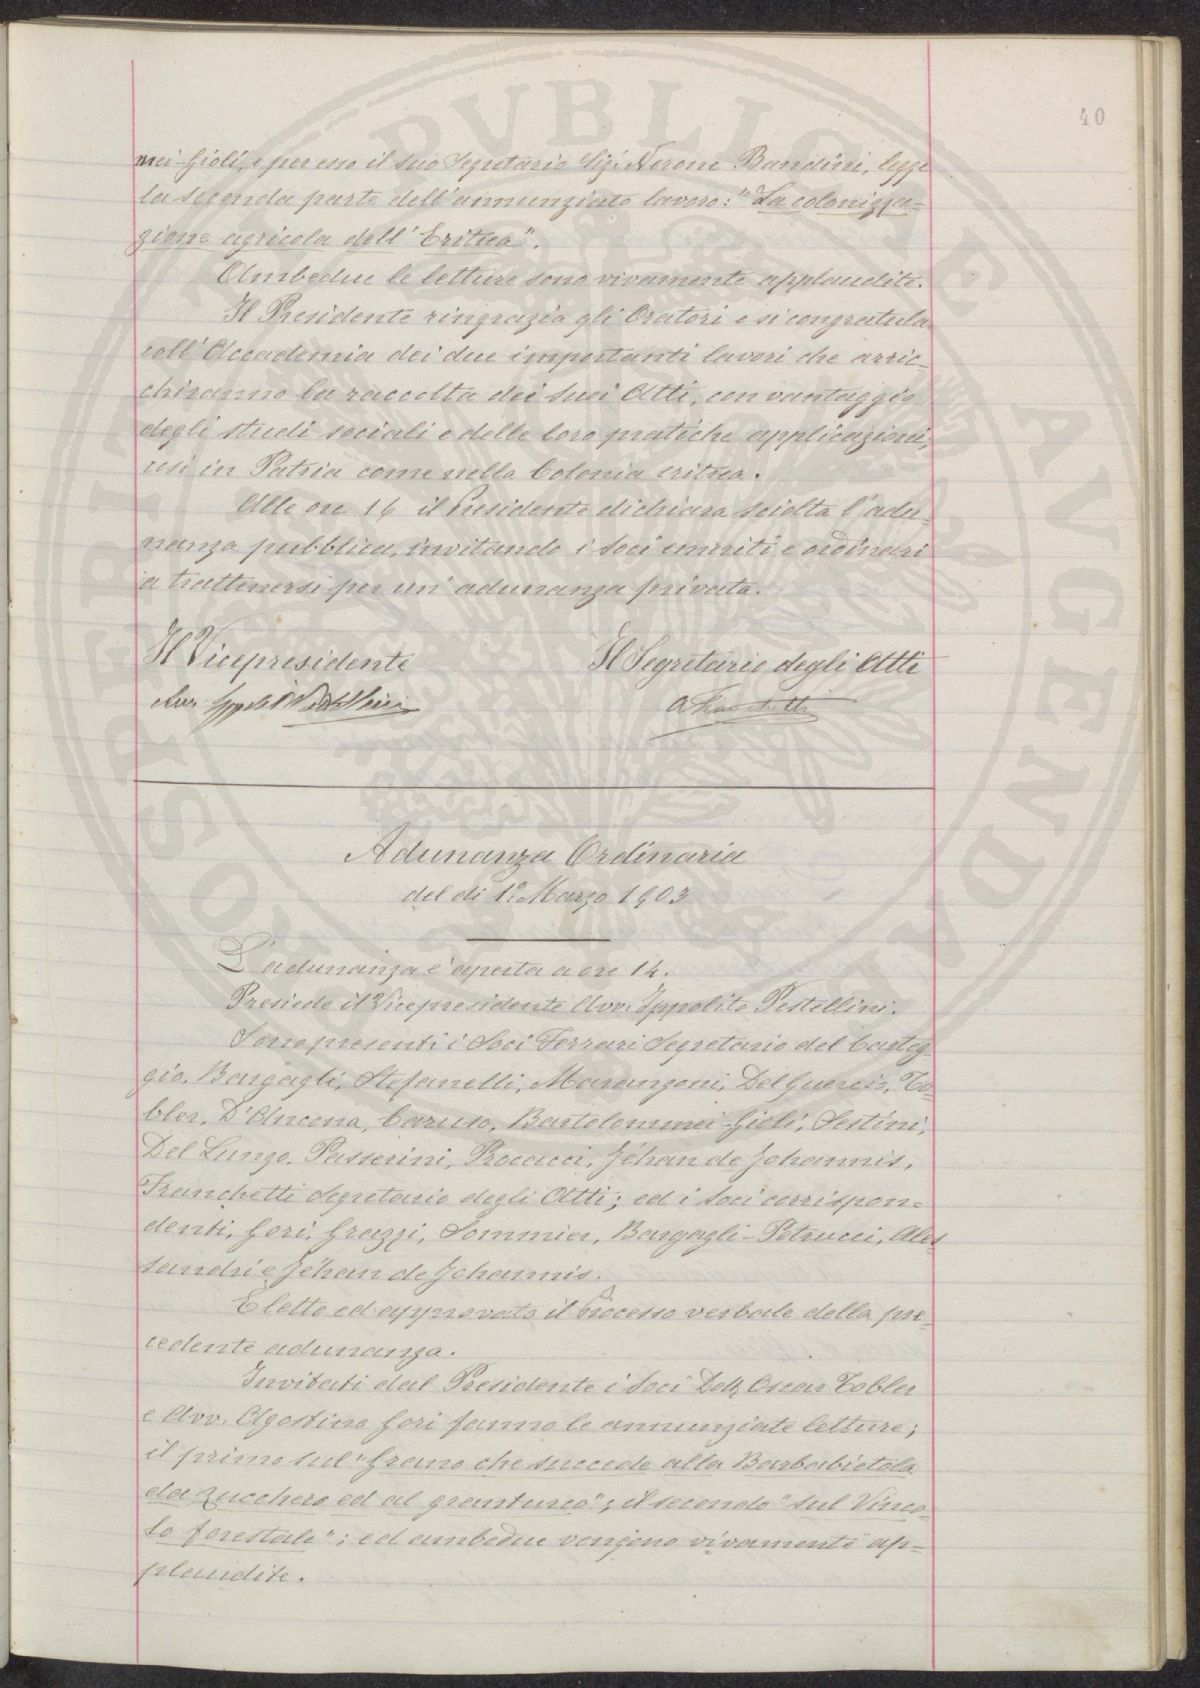 40
mei-Gioli, e per esso il suo Segretario Sig. Nerone Bandini, legge
la seconda parte dell'annunziato lavoro: "La colonizza=
zione agricola dell'Eritrea".
Ambedue le letture sono vivamente applaudite.
Il Presidente ringrazia gli Oratori e si congratula
coll'Accademia dei due importanti lavori che arric=
chiranno la raccolta dei suoi Atti, con vantaggio
degli studi sociali e delle loro pratiche applicazioni,
così in Patria come nella Colonia eritrea.
Alle ore 16 il Presidente dichiara sciolta l'adu=
nanza pubblica, invitando i Soci emeriti e ordinari
a trattenersi per un'adunanza privata.
Il Vicepresidente Il Segretario degli Atti
Avv. Ippolito Pestellini A Franchetti
Adunanza Ordinaria
del dì 1° Marzo 1903
L'adunanza è aperta a ore 14.
Presiede il Vicepresidente Avv. Ippolito Pestellini.
Sono presenti i Soci Ferrari Segretario del Carteg=
gio, Bargagli, Stefanelli, Marangoni, Del Guercio, To=
bler, D'Ancona, Caruso, Bartolommei-Gioli, Sestini,
Del Lungo, Passerini, Procacci, Jéhan de Johannis,
Franchetti Segretario degli Atti; ed i Soci corrispon=
denti, Gori, Grazzi, Sommier, Bargagli-Petrucci, Ales
sandri e Jéhan de Johannis.
È letto ed approvato il Processo verbale della pre=
cedente adunanza.
Invitati dal Presidente i Soci Dott. Oscar Tobler
e Avv. Agostino Gori fanno le annunziate letture;
il primo sul "Grano che succede alla Barbabietola
da zucchero ed al granturco"; il secondo "sul Vinco=
lo forestale"; ed ambedue vengono vivamente ap=
plaudite.